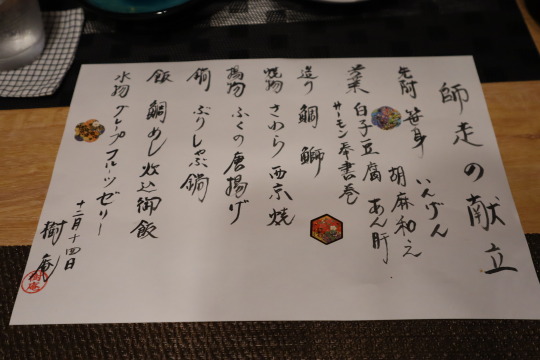 師走の献立
先附 笹身 いんげん
胡麻和え
あん肝
前菜 白子豆腐
サーモン奉書巻
造り 鯛 鰤
焼物 さわら西京焼
揚物 ふくの唐揚げ
鍋 ぶりしゃぶ鍋
飯 鯛めし炊込御飯
水物 グレープフルーツゼリー
十二月十四日
樹庵